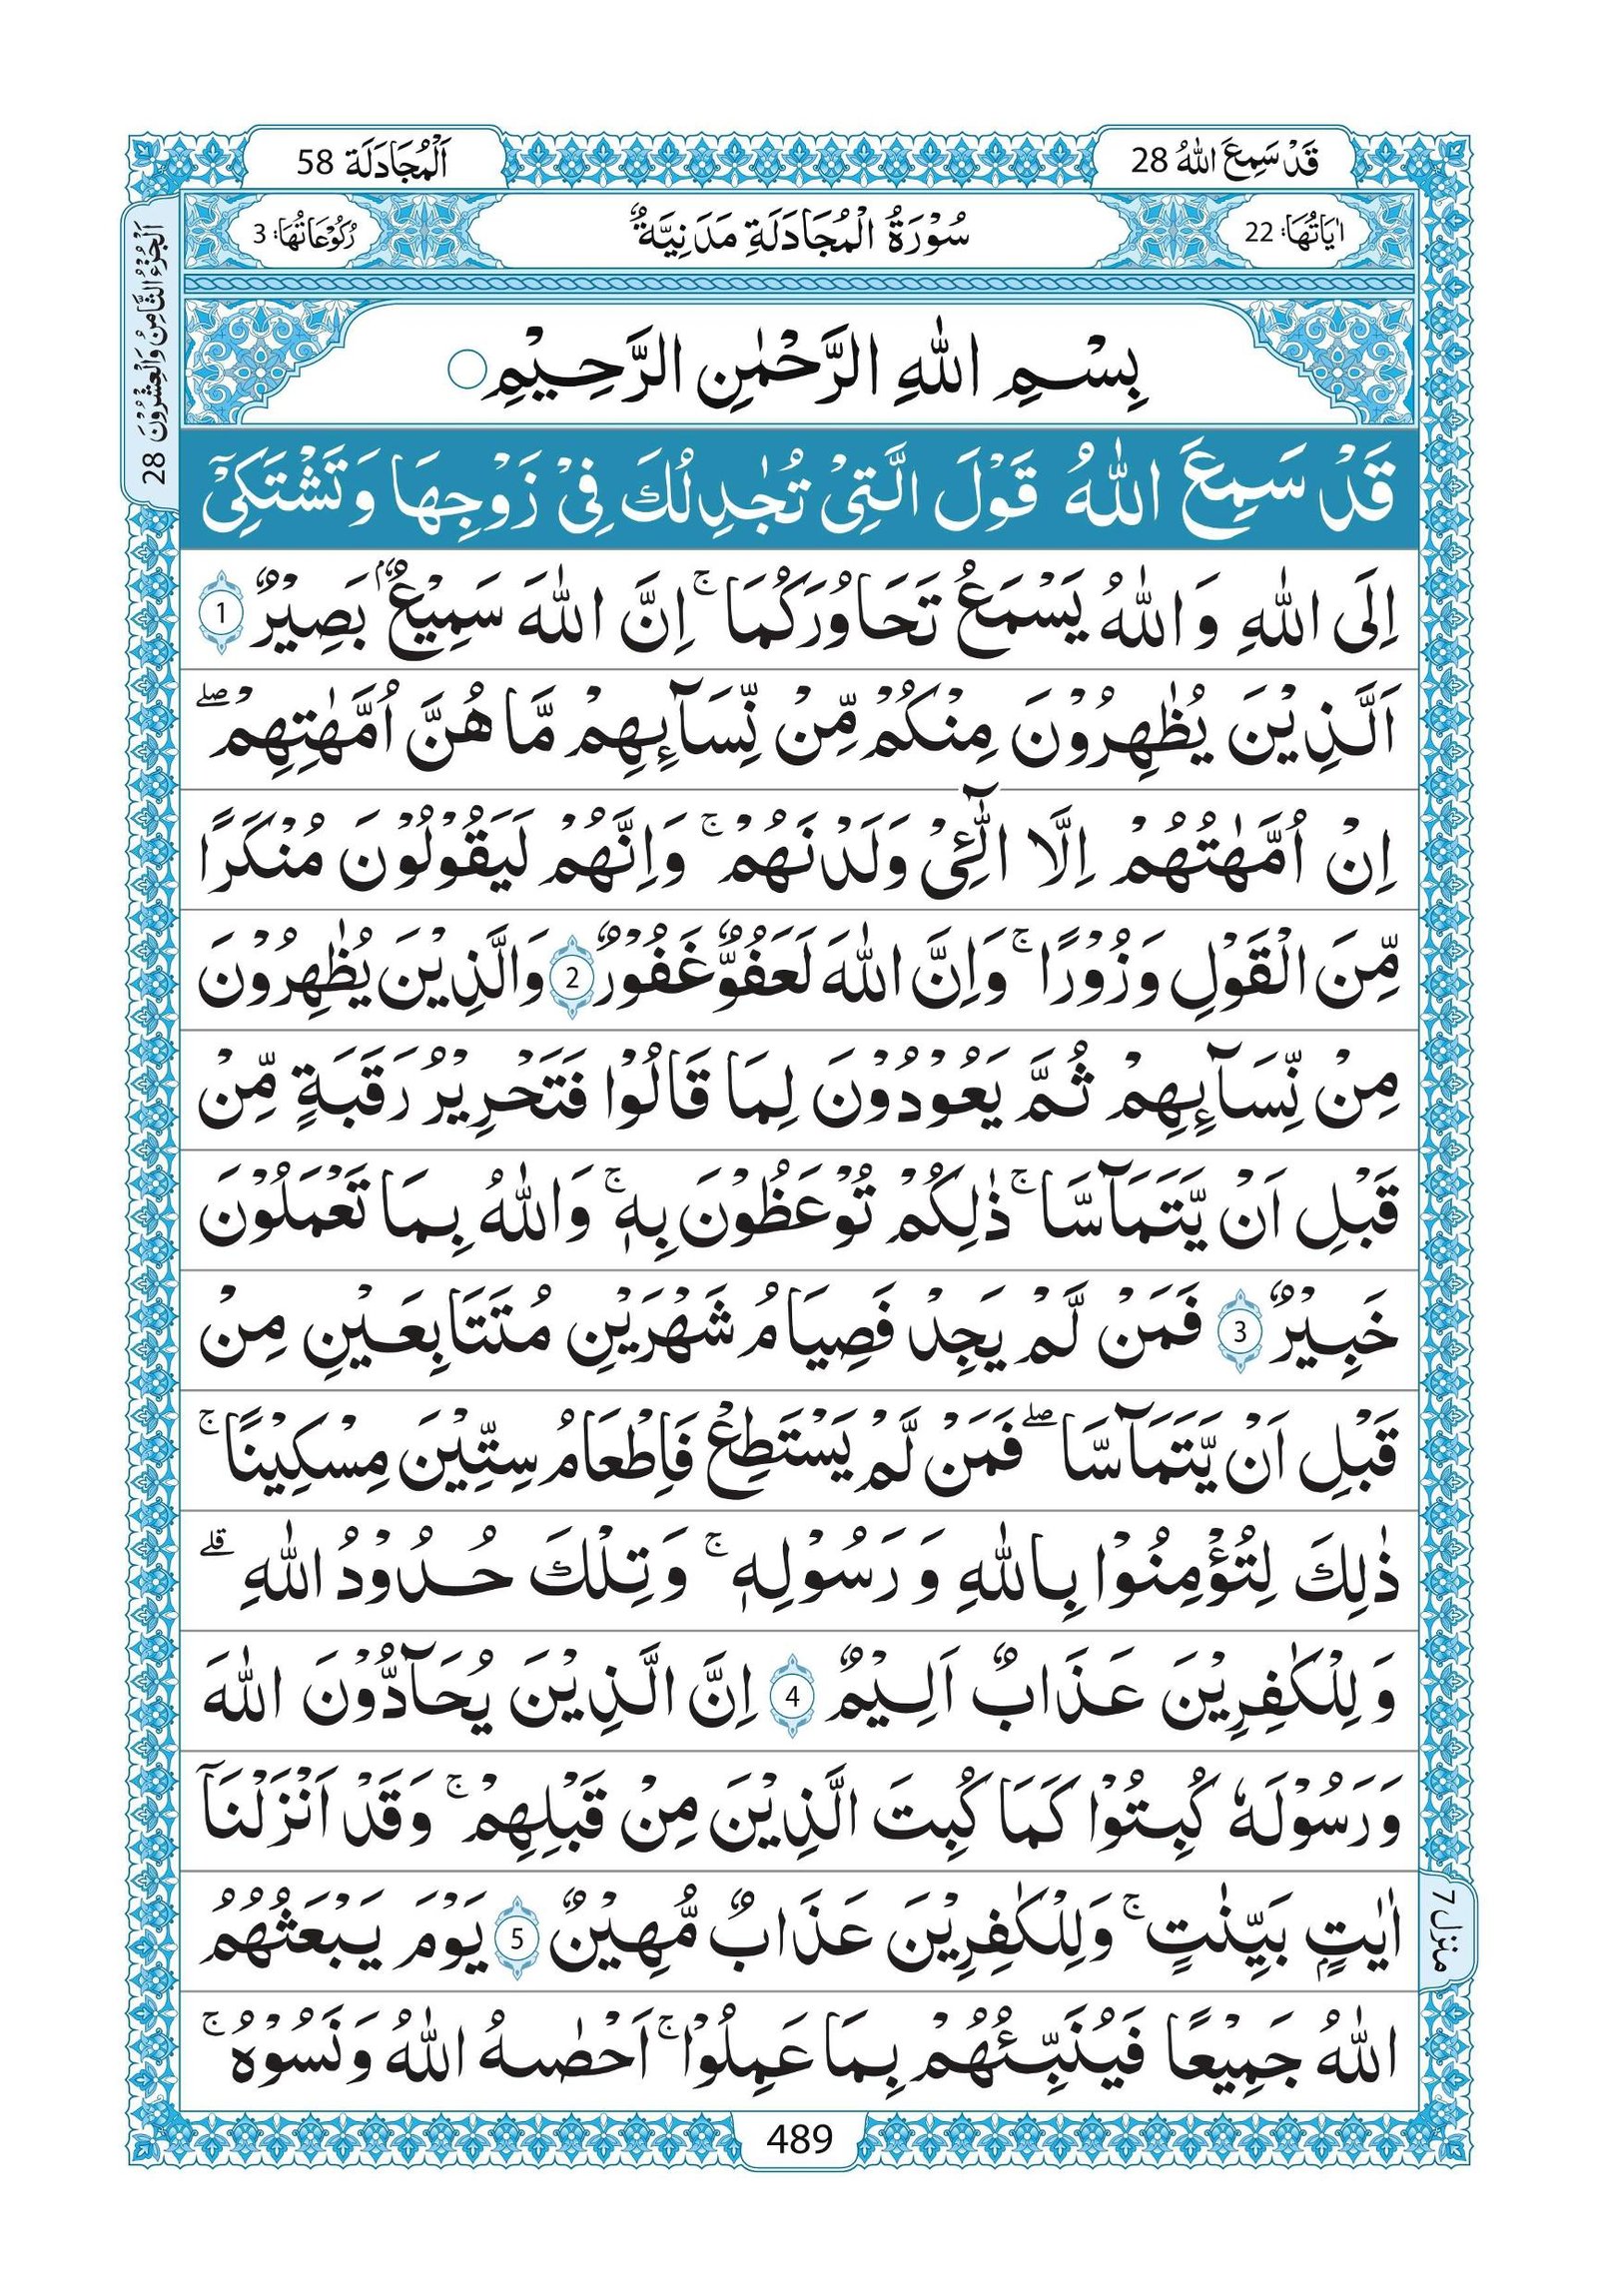 قَدْ سَمِعَ اللّٰهُ 28
اَلْمُجَادَلَة 58
اٰيَاتُهَا: 22
سُوْرَةُ الْمُجَادَلَةِ مَدَنِيَّةٌ
رُكُوْعَاتُهَا: 3
بِسْمِ اللّٰهِ الرَّحْمٰنِ الرَّحِيْمِ
قَدْ سَمِعَ اللّٰهُ قَوْلَ الَّتِيْ تُجٰدِلُكَ فِيْ زَوْجِهَا وَتَشْتَكِيْٓ
اِلَى اللّٰهِ وَاللّٰهُ يَسْمَعُ تَحَاوُرَكُمَا ۚ اِنَّ اللّٰهَ سَمِيْعٌۢ بَصِيْرٌ 1
اَلَّذِيْنَ يُظٰهِرُوْنَ مِنْكُمْ مِّنْ نِّسَآىِٕهِمْ مَّا هُنَّ اُمَّهٰتِهِمْ ۖ
اِنْ اُمَّهٰتُهُمْ اِلَّا الّٰٓـِٔيْ وَلَدْنَهُمْ ۚ وَاِنَّهُمْ لَيَقُوْلُوْنَ مُنْكَرًا
مِّنَ الْقَوْلِ وَزُوْرًا ۚ وَاِنَّ اللّٰهَ لَعَفُوٌّ غَفُوْرٌ 2 وَالَّذِيْنَ يُظٰهِرُوْنَ
مِنْ نِّسَآىِٕهِمْ ثُمَّ يَعُوْدُوْنَ لِمَا قَالُوْا فَتَحْرِيْرُ رَقَبَةٍ مِّنْ
قَبْلِ اَنْ يَّتَمَآسَّا ۚ ذٰلِكُمْ تُوْعَظُوْنَ بِهٖ ۚ وَاللّٰهُ بِمَا تَعْمَلُوْنَ
خَبِيْرٌ 3 فَمَنْ لَّمْ يَجِدْ فَصِيَامُ شَهْرَيْنِ مُتَتَابِعَيْنِ مِنْ
قَبْلِ اَنْ يَّتَمَآسَّا ۖ فَمَنْ لَّمْ يَسْتَطِعْ فَاِطْعَامُ سِتِّيْنَ مِسْكِيْنًا ۚ
ذٰلِكَ لِتُؤْمِنُوْا بِاللّٰهِ وَرَسُوْلِهٖ ۚ وَتِلْكَ حُدُوْدُ اللّٰهِ ۗ
وَلِلْكٰفِرِيْنَ عَذَابٌ اَلِيْمٌ 4 اِنَّ الَّذِيْنَ يُحَآدُّوْنَ اللّٰهَ
وَرَسُوْلَهٗ كُبِتُوْا كَمَا كُبِتَ الَّذِيْنَ مِنْ قَبْلِهِمْ ۚ وَقَدْ اَنْزَلْنَآ
اٰيٰتٍۭ بَيِّنٰتٍ ۚ وَلِلْكٰفِرِيْنَ عَذَابٌ مُّهِيْنٌ 5 يَوْمَ يَبْعَثُهُمُ
اللّٰهُ جَمِيْعًا فَيُنَبِّئُهُمْ بِمَا عَمِلُوْا ۚ اَحْصٰىهُ اللّٰهُ وَنَسُوْهُ ۚ
489
اَلْجُزْءُ الثَّامِنُ وَالْعِشْرُوْنَ 28
منزل ۷